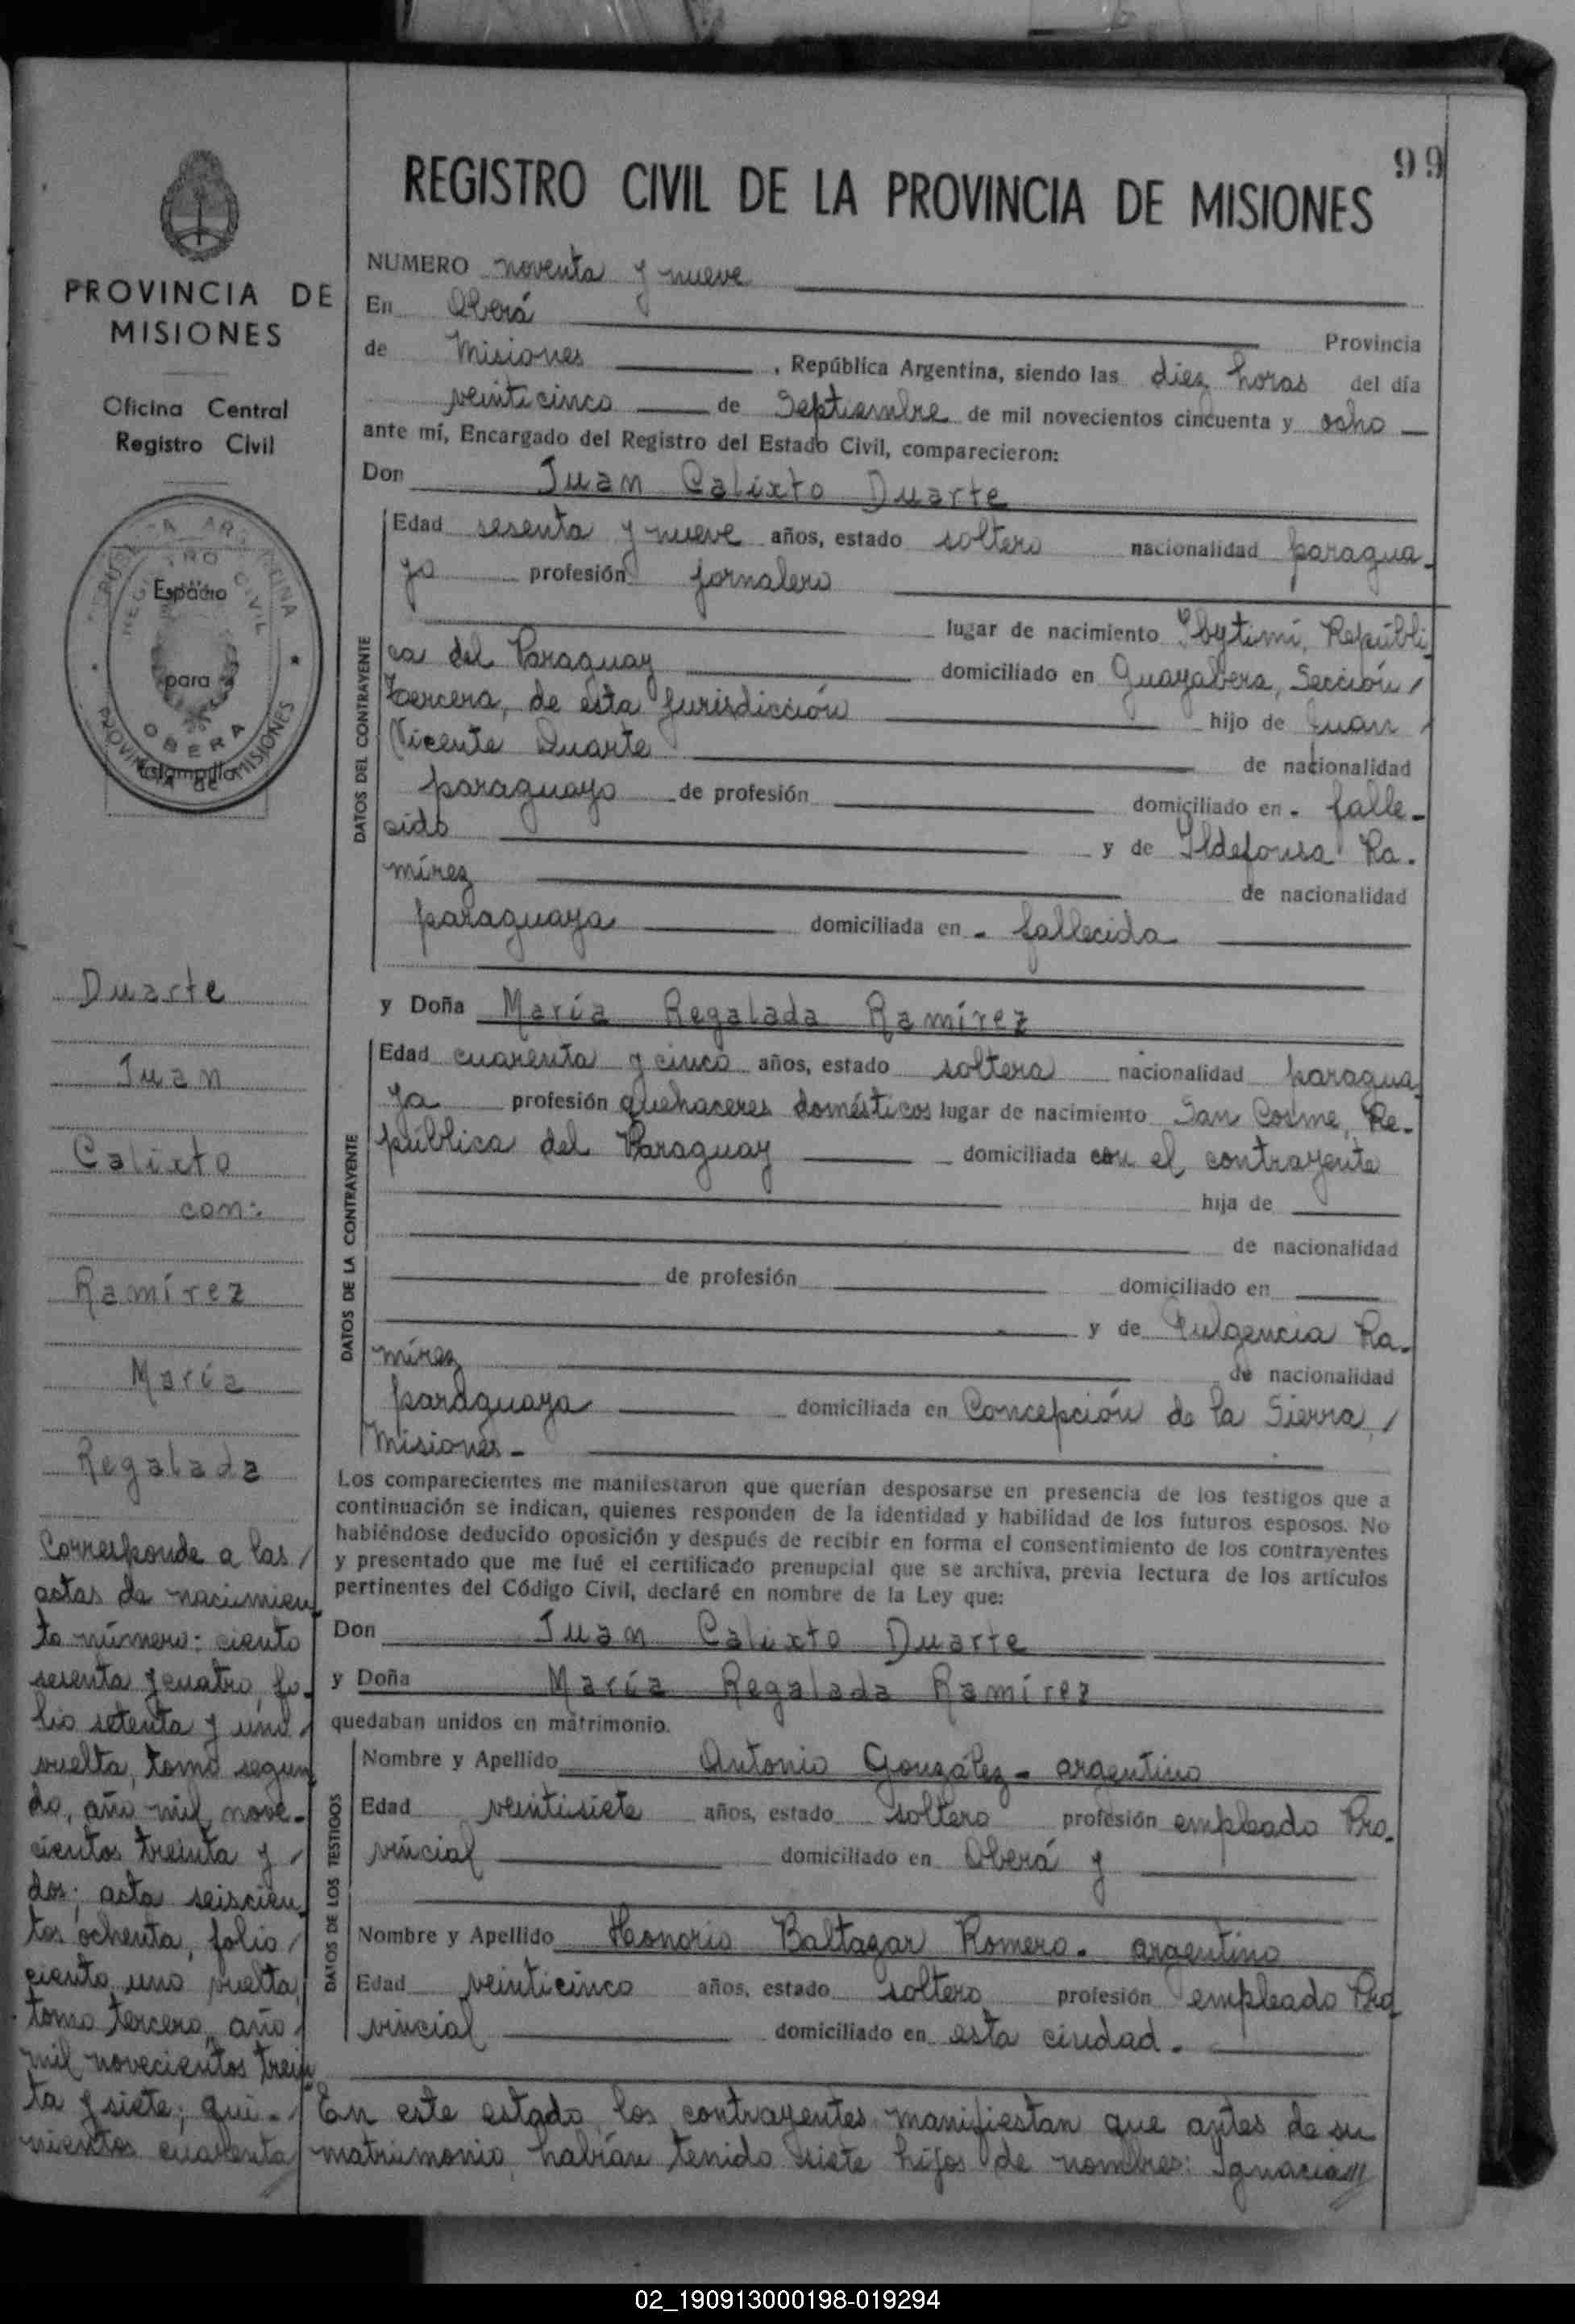 99
REGISTRO CIVIL DE LA PROVINCIA DE MISIONES
PROVINCIA DE
MISIONES
Oficina Central
Registro Civil
Espacio
para
Estampilla
REGISTRO CIVIL
OBERA
PROVINCIA de MISIONES
NUMERO noventa y nueve
En Oberá Provincia
de Misiones, República Argentina, siendo las diez horas del día
veinticinco de Septiembre de mil novecientos cincuenta y ocho
ante mí, Encargado del Registro del Estado Civil, comparecieron:
Don Juan Calixto Duarte
DATOS DEL CONTRAYENTE
Edad sesenta y nueve años, estado soltero nacionalidad paragua-
yo profesión jornalero
lugar de nacimiento Ybytimí, Repúbli-
ca del Paraguay domiciliado en Guayabera, Sección /
tercera, de esta jurisdicción hijo de Juan /
Vicente Duarte de nacionalidad
paraguayo de profesión domiciliado en - falle-
cido y de Ildefonsa Ra-
mírez de nacionalidad
paraguaya domiciliada en - fallecida
y Doña María Regalada Ramírez
DATOS DE LA CONTRAYENTE
Edad cuarenta y cinco años, estado soltera nacionalidad paragua-
ya profesión quehaceres domésticos lugar de nacimiento San Cosme, Re-
pública del Paraguay domiciliada con el contrayente
hija de
de nacionalidad
de profesión domiciliado en
y de Fulgencia Ra-
mírez de nacionalidad
paraguaya domiciliada en Concepción de la Sierra, /
Misiones.-
Los comparecientes me manifestaron que querían desposarse en presencia de los testigos que a
continuación se indican, quienes responden de la identidad y habilidad de los futuros esposos. No
habiéndose deducido oposición y después de recibir en forma el consentimiento de los contrayentes
y presentado que me fué el certificado prenupcial que se archiva, previa lectura de los artículos
pertinentes del Código Civil, declaré en nombre de la Ley que:
Don Juan Calixto Duarte
y Doña María Regalada Ramírez
quedaban unidos en matrimonio.
DATOS DE LOS TESTIGOS
Nombre y Apellido Antonio González - argentino
Edad veintisiete años, estado soltero profesión empleado Pro-
vincial domiciliado en Oberá y
Nombre y Apellido Honorio Baltazar Romero - argentino
Edad veinticinco años, estado soltero profesión empleado Pro-
vincial domiciliado en esta ciudad.
En este estado los contrayentes manifiestan que antes de su
matrimonio, habían tenido siete hijos de nombres: Ignacia///
Duarte
Juan
Calixto
con:
Ramírez
María
Regalada
Corresponde a las /
actas de nacimien-
to número: ciento
sesenta y cuatro, fo-
lio setenta y uno /
vuelta, tomo segun-
do, año mil nove-
cientos treinta y /
dos; acta seiscien-
tos ochenta, folio /
ciento uno vuelta,
tomo tercero, año /
mil novecientos trein-
ta y siete; qui-
nientos cuarenta /
02_190913000198-019294